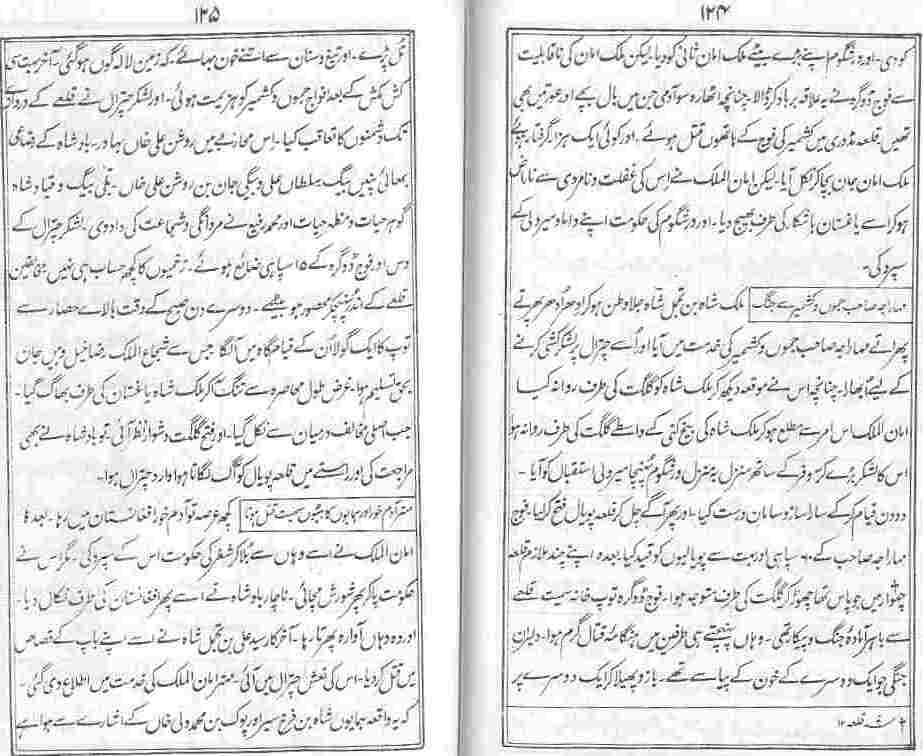 ۱۲۴
کو دی۔ اور ورشگوم اپنے بڑے بیٹے ملک امان ثانی کو دیا۔ لیکن ملک امان کی ناقابلیت
سے فوج ڈوگرہ نے یہ علاقہ برباد کر ڈالا۔ چنانچہ اٹھارہ سو آدمی جن میں بال بچے اور عورتیں بھی
تھیں قلعہ مڈوری میں کشمیر کی فوج کے ہاتھوں قتل ہوئے۔ اور کوئی ایک ہزار گرفتار ہوئے
ملک امان جان بچا کر نکل آیا۔ لیکن امان الملک نے اس کی غفلت و نامردی سے ناراض
ہو کر اسے یاغستان باشکار کی طرف بھیج دیا۔ اور ورشگوم کی حکومت اپنے داماد میر ولی کے
سپرد کی۔
مہاراجہ صاحب جموں و کشمیر سے جنگ ملک شاہ بن تجمل شاہ جلا وطن ہو کر ادھر اُدھر پھرتے
پھراتے مہاراجہ صاحب جموں و کشمیر کی خدمت میں آیا اور اُسے چترال پر لشکر کشی کرنے
کے لیے اُبھارا۔ چنانچہ اس نے موقعہ دیکھ کر ملک شاہ کو گلگت کی طرف روانہ کیا
امان الملک اس امر سے مطلع ہو کر ملک شاہ کی بیخ کنی کے واسطے گلگت کی طرف روانہ ہوا
اس کا لشکر بڑے کروفر کے ساتھ منزل بمنزل ورشگوم پہنچا میر ولی استقبال کو آیا۔
دو دن قیام کر کے ساز و سامان درست کیا۔ اور پھر آگے چل کر قلعہ پویال فتح کر لیا۔ فوج
مہاراجہ صاحب کے ۶۰ سپاہی اور بہت سے پویالیوں کو قید کیا بعدہ اپنے چند ملازم قلعہ
میں جو پاس تھا چھوڑ کر گلگت کی طرف متوجہ ہوا۔ فوج ڈوگرہ توپ خانہ سمیت قلعے
سے باہر آمادۂ جنگ و پیکار تھی۔ وہاں پہنچتے ہی طرفین میں ہنگامۂ قتال گرم ہوا۔ دلیران
جنگی جو ایک دوسرے کے خون کے پیاسے تھے۔ بازو پھیلا کر ایک دوسرے پر
قلعہ ۱۲
۱۲۵
ٹل پڑے۔ اور تیغ و سنان سے اتنے خون بہائے۔ کہ زمین لالہ گوں ہو گئی۔ آخر بہت سی
کش مکش کے بعد افواج جموں و کشمیر کو ہزیمت ہوئی۔ اور لشکر چترال نے قلعے کے دروازے
تک دشمنوں کا تعاقب کیا۔ اس محاربے میں روشن علی خان بہادر۔ بادشاہ کے رضاعی
بھائی پنیں بیگ۔ سلطان علی و بیگی جان بن روشن علی خان۔ بیگ و قباد شاہ
گوہر حیات و مظہر حیات اور محمد رفیع نے مردانگی و شجاعت کی داد دی۔ لشکر چترال کے
دس اور فوج ڈوگرہ کے ۱۵ سپاہی ضائع ہوئے۔ زخمیوں کا کچھ حساب ہی نہیں۔
قلعے کے اندر پہنچکر محصور ہو بیٹھے۔ دوسرے دن صبح کے وقت بالائے حصار سے
توپ کا ایک گولا ان کے قیامگاہ میں آ لگا جس سے شجاع الملک رضا خیل وہیں جان
بحق تسلیم ہوا۔ غرض طول محاصرہ سے تنگ آ کر ملک شاہ یاغستان کی طرف بھاگ گیا۔
جب اصلی مخالف درمیان سے نکل گیا۔ اور فتح گلگت دشوار نظر آئی تو بادشاہ نے بھی
مراجعت کی اور راستے میں قلعہ پویال کو آگ لگاتا ہوا وارد چترال ہوا۔
مہتر آدم خور اور ہمایوں کا بیٹوں سمیت قتل ہونا کچھ عرصہ تو آدم خور افغانستان میں رہا۔ بعدہٗ
امان الملک نے اسے وہاں سے بلا کر شغر کی حکومت اس کے سپرد کی۔ مگر اس نے
حکومت پا کر پھر شورش مچائی۔ ناچار بادشاہ نے اسے پھر افغانستان کی طرف نکال دیا۔
اور وہ وہاں آوارہ پھرتا رہا۔ آخر کار سید علی بن تجمل شاہ نے اسے اپنے باپ کے قصاص
میں قتل کر دیا۔ اس کی نعش چترال میں آئی۔ مہتر امان الملک کی خدمت میں اطلاع دی گئی۔
کہ یہ واقعہ ہمایوں شاہ بن فرخ سیر اور پوک بن محمد ولی خاں کے اشارے سے ہوا ہے